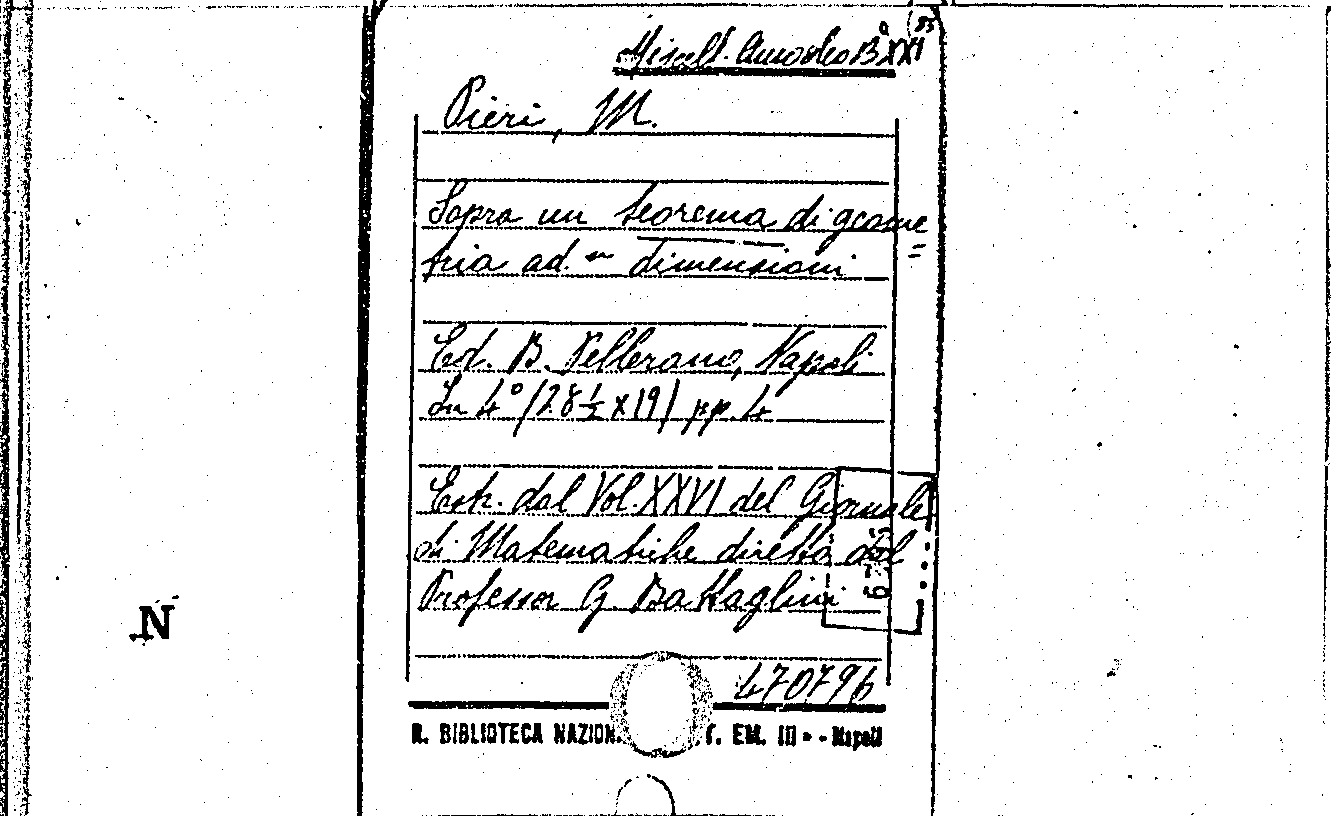 (85
Miscell. Amodeo B° XXI
Pieri, M.
Sopra un teorema di geome=
tria ad n dimensioni
Ed. B. Pellerano, Napoli
In 4° /28 ½ x 19/ pp. 4
Estr. dal Vol. XXVI del Giornale
di Matematiche diretto dal
Professor G. Battaglini
470796
R. BIBLIOTECA NAZION. T. EM. III - - Napoli
N